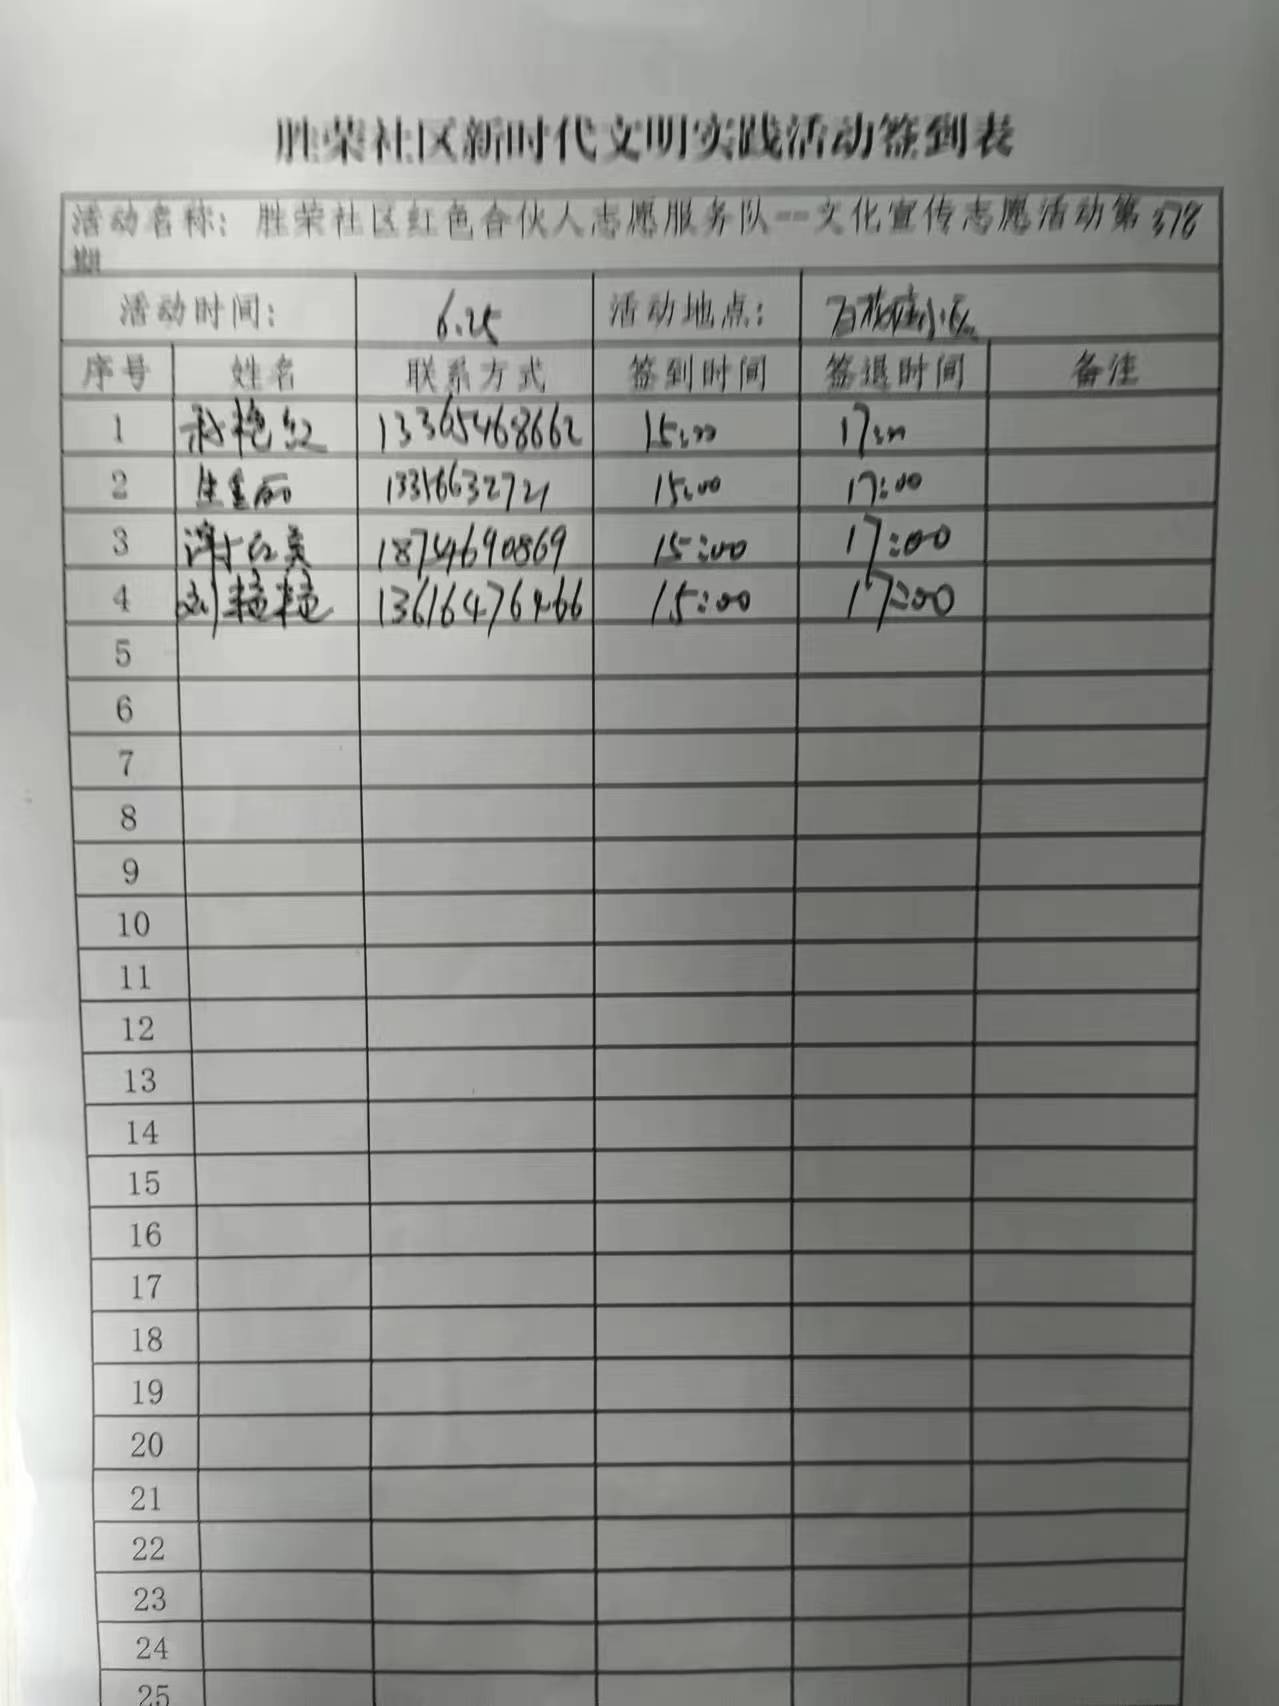 胜荣社区新时代文明实践活动签到表
活动名称：胜荣社区红色合伙人志愿服务队--文化宣传志愿活动第378
期
活动时间： 6.25 活动地点： 小区
序号 姓名 联系方式 签到时间 签退时间 备注
1 13365468662 15:00 17:00
2 15:00 17:00
3 18754690869 15:00 17:00
4 刘 15:00 17:00
5
6
7
8
9
10
11
12
13
14
15
16
17
18
19
20
21
22
23
24
25